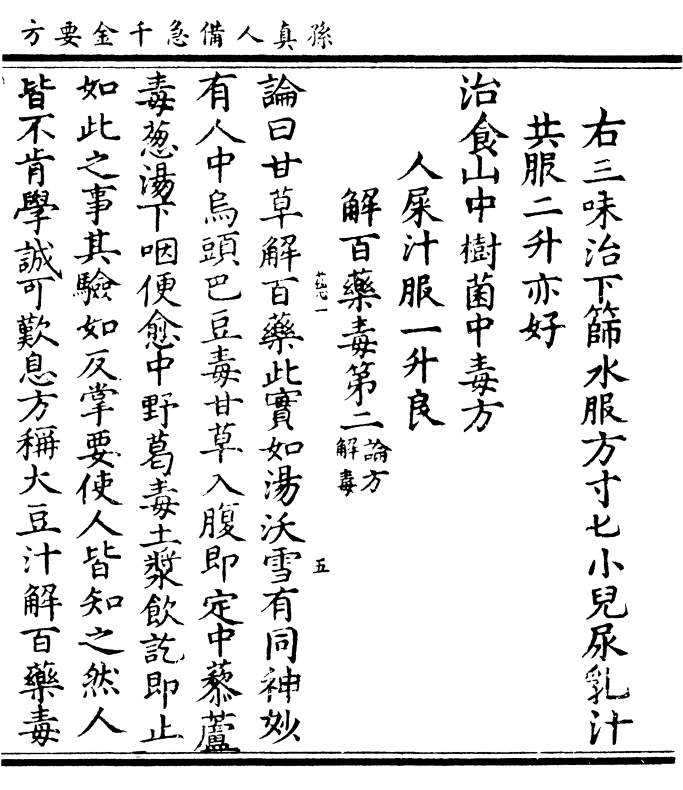 孫真人備急千金要方
右三味治下篩水服方寸匕小兒尿乳汁
共服二升亦好
治食山中樹菌中毒方
人屎汁服一升良
解百藥毒第二
論方
解毒
論曰甘草解百藥此實如湯沃雪有同神妙
有人中烏頭巴豆毒甘草入腹即定中藜蘆
毒葱湯下咽便愈中野葛毒土漿飲訖即止
如此之事其驗如反掌要使人皆知之然人
皆不肯學誠可歎息方稱大豆汁解百藥毒
五